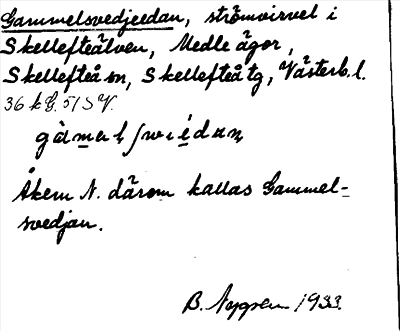 Gammelsvedjeedan, strömvirvel i
Skellefteälven, Medle ägor,
Skellefteå sn, Skellefteå tg, Västerb. l.
36 k G. 51 S V.
Åkern N. därom kallas Gammel-
svedjan.
B. Nygren 1933.